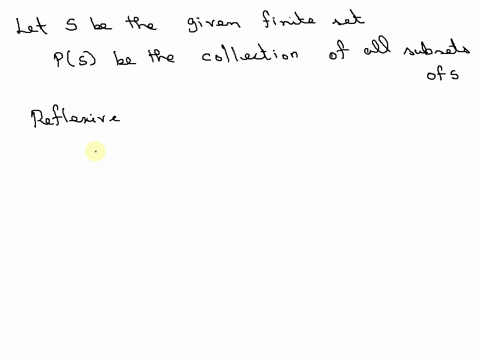 Let S be the given finite set
P(S) be the collection of all subsets
of S
Reflexive